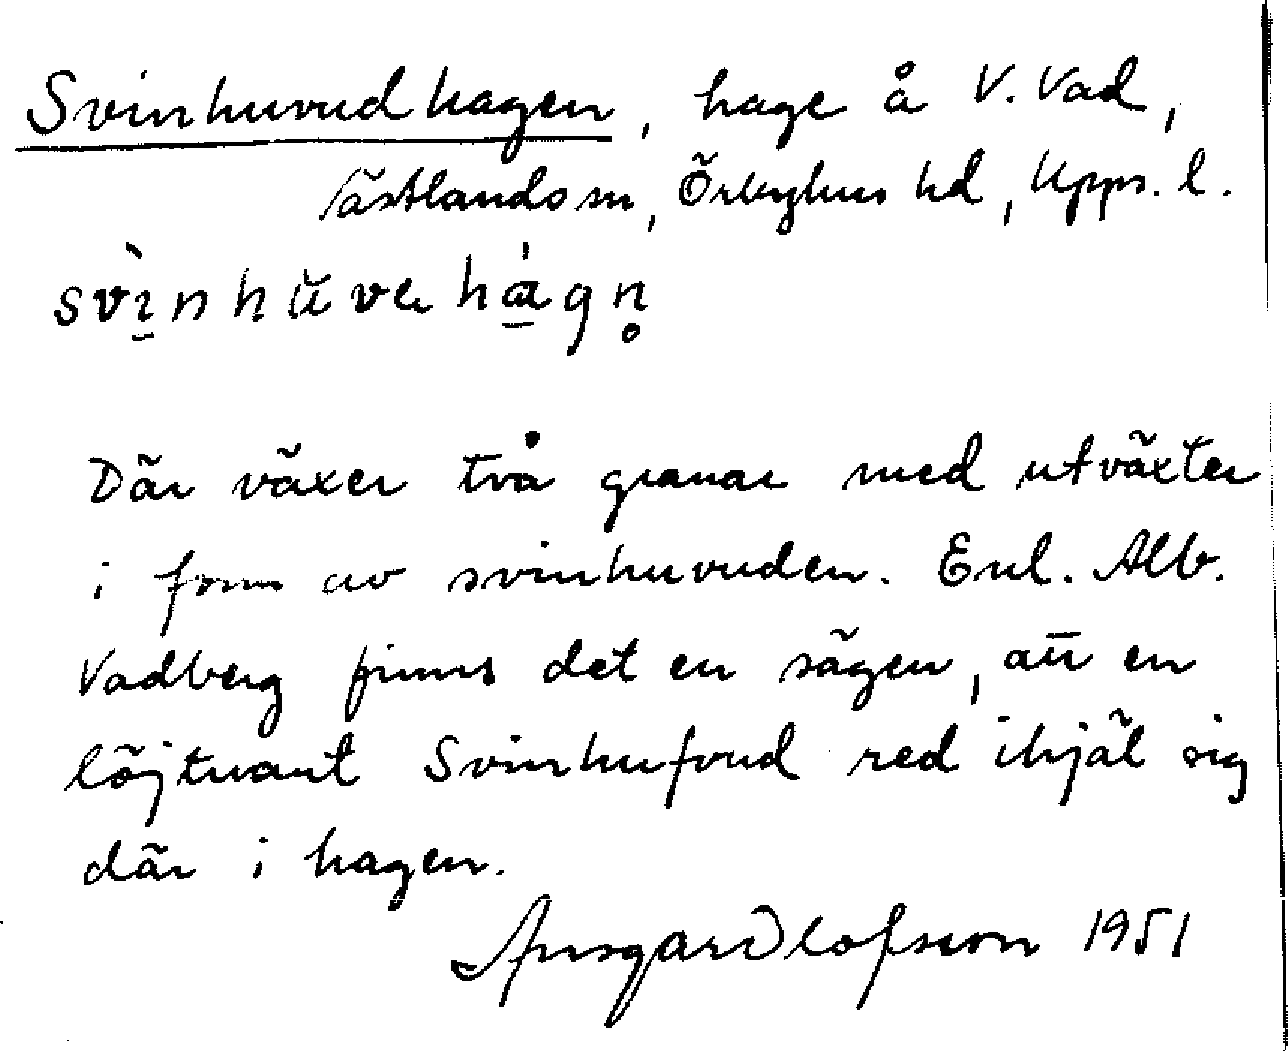 Svinhuvudhagen, hage å V. Vad,
Västlands sn, Örbyhus hd, Upps. l.
svìnhŭvehágn̥
Där växer två granar med utväxter
i form av svinhuvuden. Enl. Alb.
Vadberg finns det en sägen, att en
löjtnant Svinhufvud red ihjäl sig
där i hagen.
Ansgar Olofsson 1951